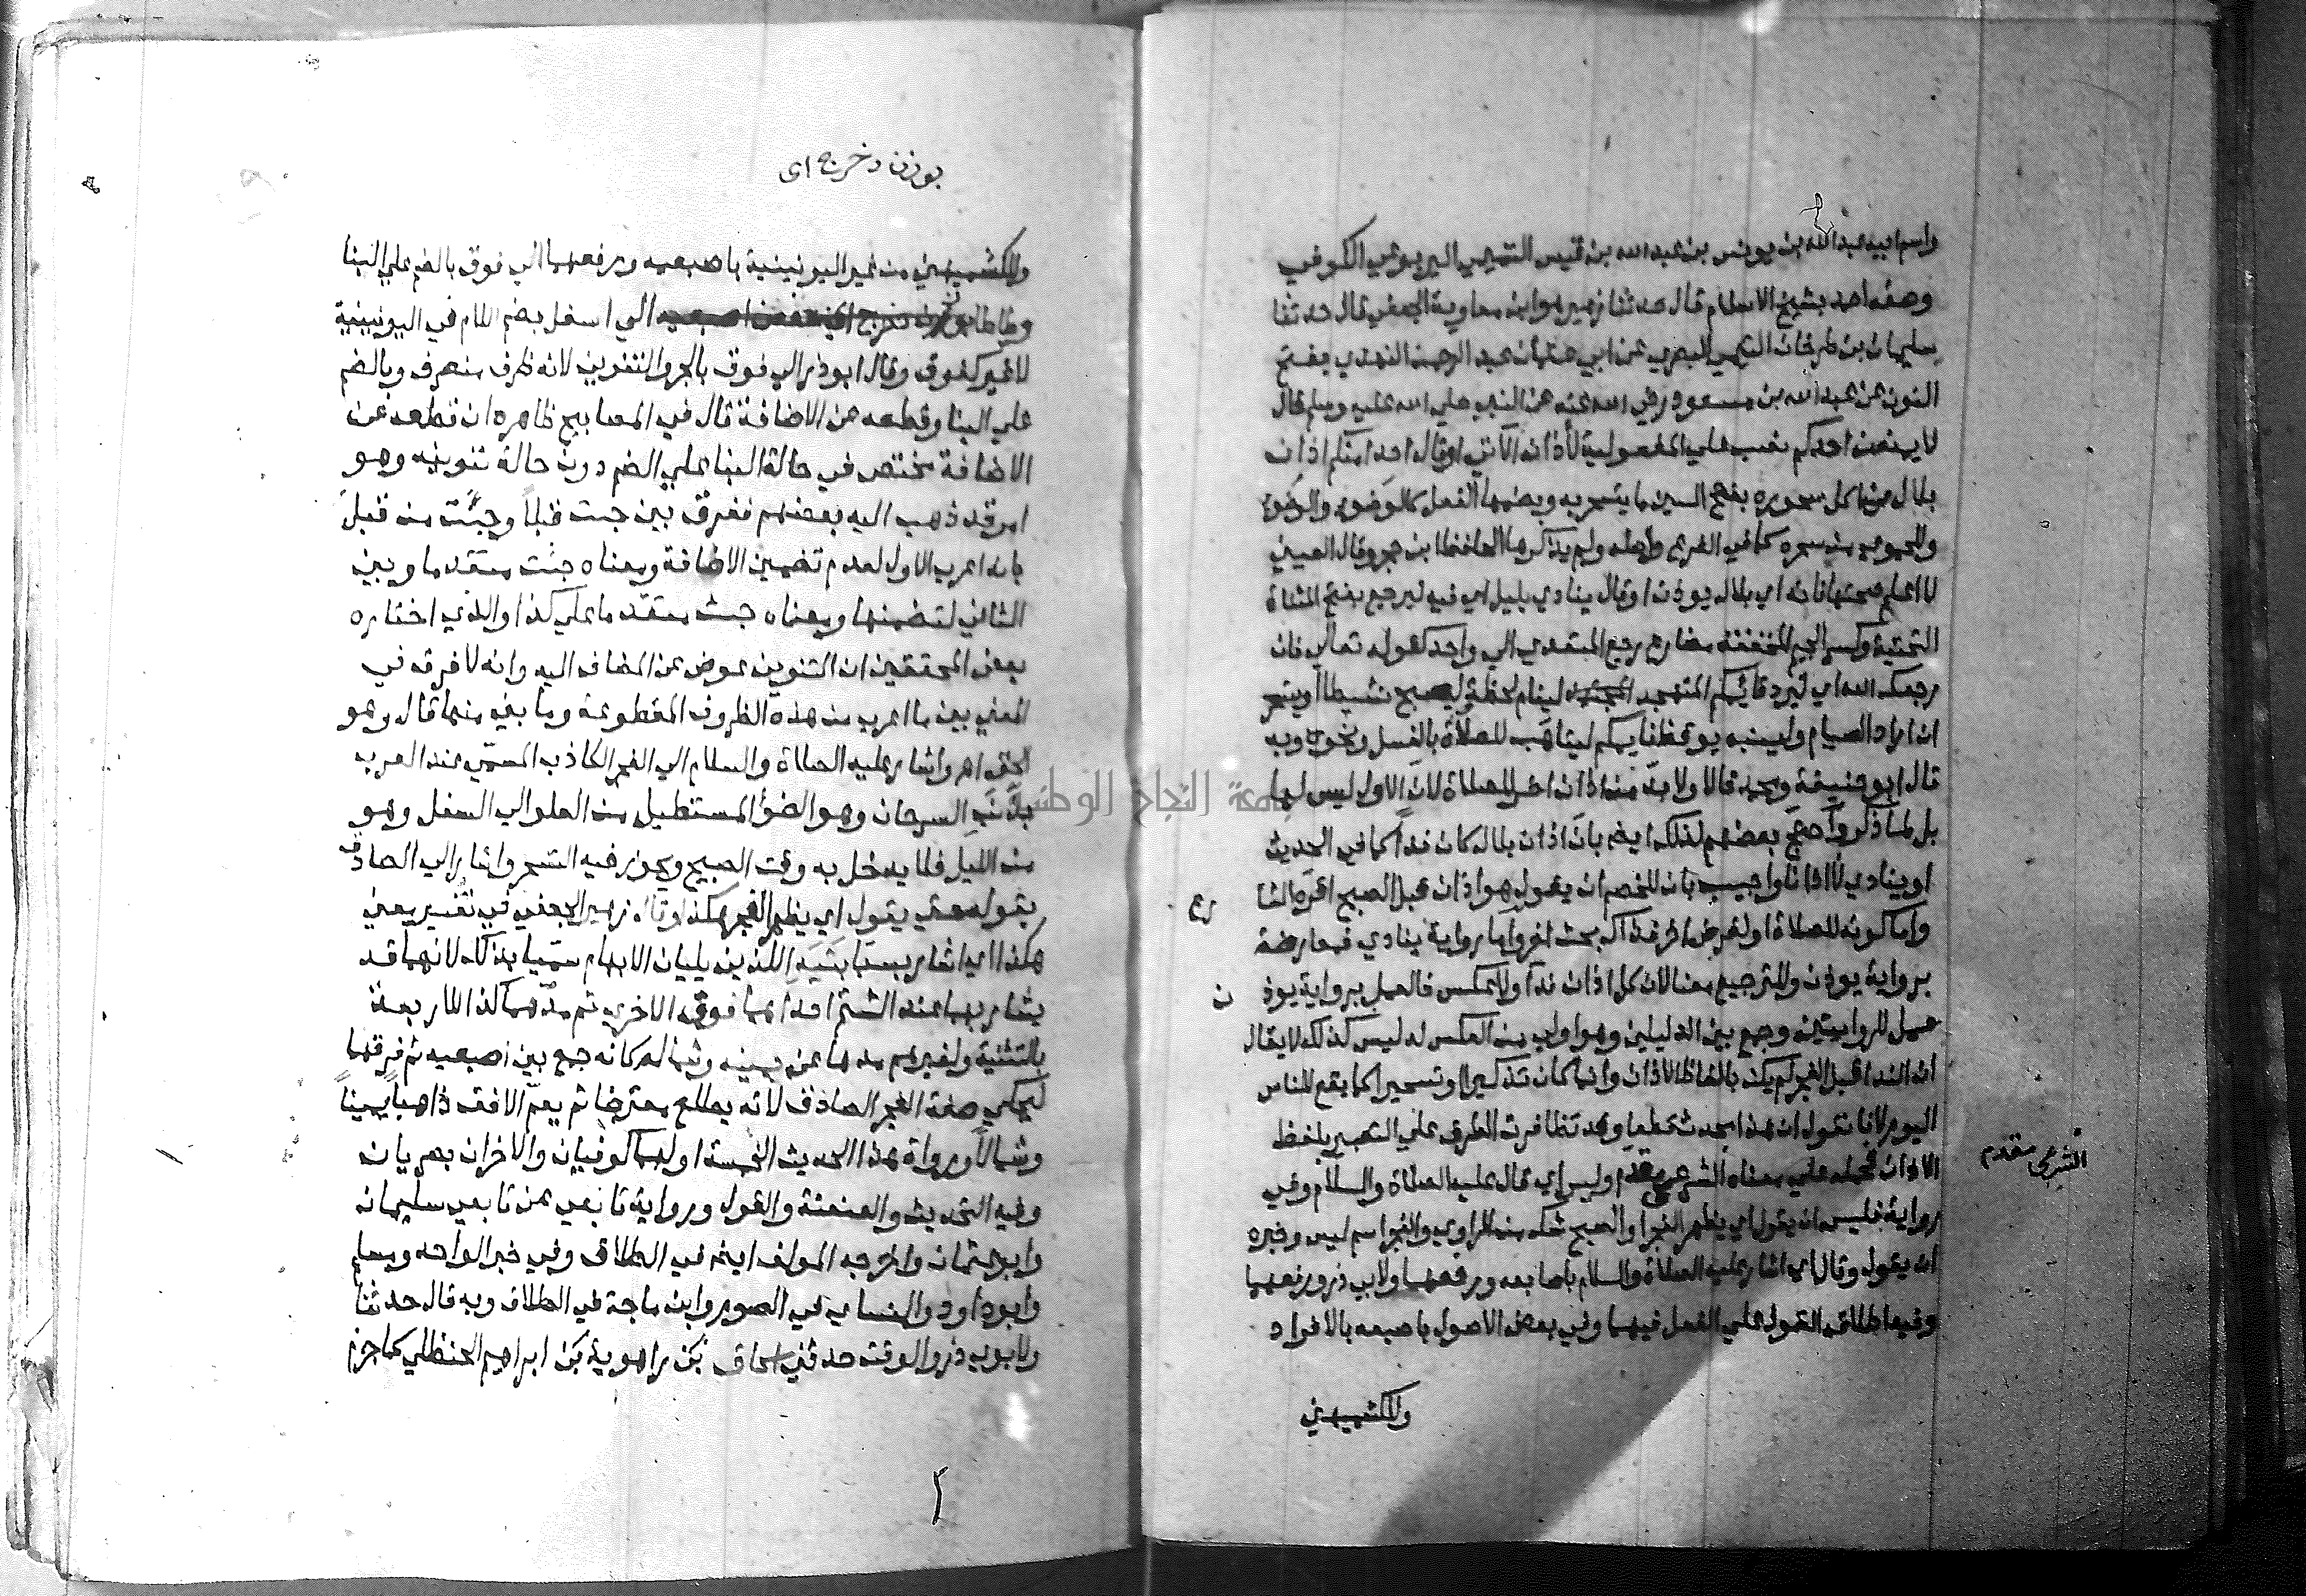 واسم ابيه عبد الله بن يونس بن عبد الله بن قيس التميمي اليربوعي الكوفي
وصفه احمد بشيخ الاسلام قال حدثنا زهير هو ابن معاوية الجعفي قال حدثنا
سليمان بن طرخان التيمي البصري عن ابي عثمان عبد الرحمن النهدي بفتح
النون عن عبد الله بن مسعود رضي الله عنه عن النبي صلي الله عليه وسلم قال
لا يمنعن احدكم نصب علي المفعولية لأذان الآتي او قال احدا منكم اذان
بلال من اكل سحوره بفتح السين ما يتسحر به وبضمها الفعل كالوَضوء والوُضوء
وللحموي من سحره كما في الفرع واصله ولم يذكرها الحافظ ابن حجر وقال العيني
لا اعلم صحتها فانه اي بلال يوذن او قال ينادي بليل اي فيه ليرجع بفتح المثناة
التحتية وكسر الجيم المخففة مضارع رجع المتعدي الي واحد كقوله تعالي فان
رجعك الله اي ليرد قائمكم المتهجد المجتهد لينام لحظة ليصبح نشيطا او يتسحر
ان اراد الصيام ولينبه يوقظ نايمكم ليتاهَّب للصلاة بالغسل ونحوه وبه
قال ابو حنيفة ومحمد قالا ولا بد من اذان اخر للصلاة لان الاول ليس لها
بل لما ذكر واحتج بعضهم لذلك ايضا بان اذان بلال كان نداً كما في الحديث
او ينادي لا اذانا واجيب بان للخصم ان يقول هو اذان قبل الصبح اقره الشا
رع
وأما كونه للصلاة او لغرض اخر فذاك بحث اخر واما رواية ينادي فمعارضة
برواية يوذن والترجيح معنا لان كل اذان نداً ولا عكس فالعمل برواية يوذ
ن
عمل للروايتين وجمع بين الدليلين وهو اولي من العكس له ليس كذلك لا يقال
ان الندا قبل الفجر لم يكن بالفاظ الاذان وانما كان تذكيرا وتسحيرا كما يقع للناس
اليوم لانا نقول ان هذا محدث قطعا وقد تظافرت الطرق علي التعبير بلفظ
الاذان فحمله علي معناه الشرعي مقدم وليس اي قال عليه الصلاة والسلام وفي
الشرعي مقدم
رواية فليس ان يقول اي يظهر الفجر او الصبح شك من الراوي والفجر اسم ليس وخبره
ان يقول وقال اي اشار عليه الصلاة والسلام باصابعه ورفعهما ولابي ذر ورفعهما
وفيه اطلاق القول علي الفعل فيهما وفي بعض الاصول باصبعه بالافراد
وللكشميهني
بوزن دخرج اي
وللكشميهني من غير اليونينية باصبعيه ورفعهما الي فوق بالضم علي البنا
وطاطا الي اسفل بضم اللام في اليونينية
لا غير كفوق وقال ابو ذر الي فوق بالجر والتنوين لانه ظرف منصرف وبالضم
علي البنا وقطعه عن الاضافة قال في المصابيح ظاهره ان قطعه عن
الاضافة مختص في حالة البنا علي الضم دون حالة تنوينه وهو
امر قد ذهب اليه بعضهم ففرق بين جئت قبلاً وجئت من قبلُ
بانه اعرب الاول لعدم تضمين الاضافة ومعناه جئت متقدما وبني
الثاني لتضمنها ومعناه جئت متقدما علي كذا والذي اختاره
بعض المحققين ان التنوين عوض عن المضاف اليه وانه لا فرق في
المعني بين ما اعرب من هذه الظروف المقطوعة وما بني منها قال وهو
الحق اهـ واشار عليه الصلاة والسلام الي الفجر الكاذب المسمّي عند العرب
بذَنَبِ السرحان وهو الضؤ المستطيل من العلو الي السفل وهو
من الليل فلا يدخل به وقت الصبح ويجوز فيه التسحر واشار الي الصادق
بقوله حتي يقول اي يظهر الفجر هكذا وقال زهير الجعفي في تفسير معني
هكذا اي اشار بسبابتيه اللذين يليان الابهام سمّيا بذلك لانهما قد
يشار بهما عند الشتم احداهما فوق الاخري ثم مدّهما كذا للاربعة
بالتثنية ولغيرهم مدها عن يمينه وشماله كانه جمع بين اصبعيه ثم فرقهما
ليحكي صفة الفجر الصادق لانه يطلع معترضا ثم يعمّ الافق ذاهباً يميناً
وشمالاً ورواة هذا الحديث الخمسة اولهما كوفيان والاخران بصريان
وفيه التحديث والعنعنة والقول ورواية تابعي عن تابعي سليمان
وابو عثمان واخرجه المولف ايضا في الطلاق وفي خبر الواحد ومسلم
وابو داود والنساي في الصوم وابن ماجة في الطلاق وبه قال حدثنا
ولابوي ذر والوقت حدثني اسحاق بن راهوية بن ابراهيم الحنظلي كما جزم
جامعة النجاح الوطنية